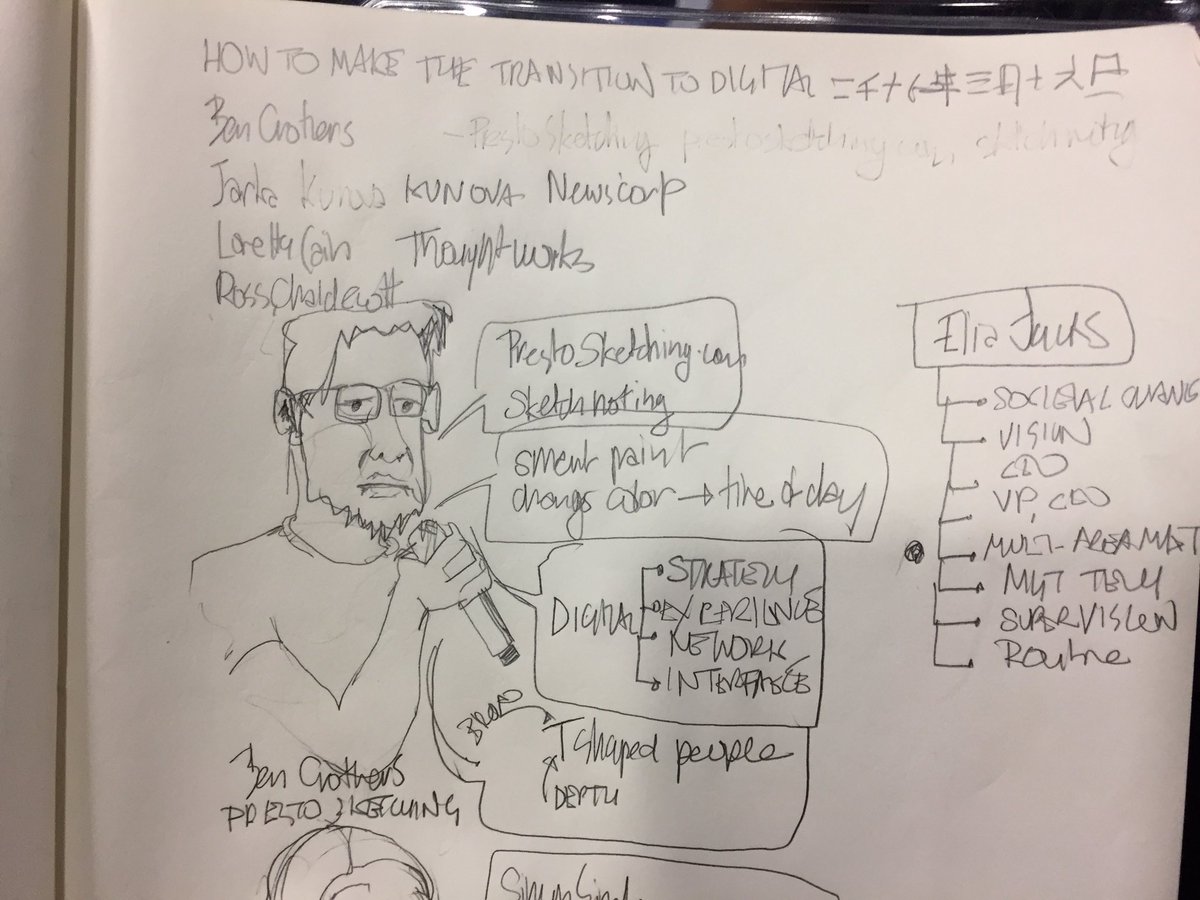 HOW TO MAKE THE TRANSITION TO DIGITAL 二千十八年三月十六日
Ben Crothers - Presto Sketching prestosketching.com, sketchnoting
Jarka Kunova KUNOVA Newscorp
Loretta Cain Thoughtworks
Ross
PrestoSketching.com
Sketchnoting
paint
change color → time of day
DIGITAL
STRATEGY
EXPERIENCE
NETWORK
INTERFACE
BROAD
T shaped people
DEPTH
Ben Crothers
PRESTO SKETCHING
SOCIETAL CHANGE
VISION
CEO
VP, CEO
MULTI-AREA MGT
MGT
SUPERVISION
Routine